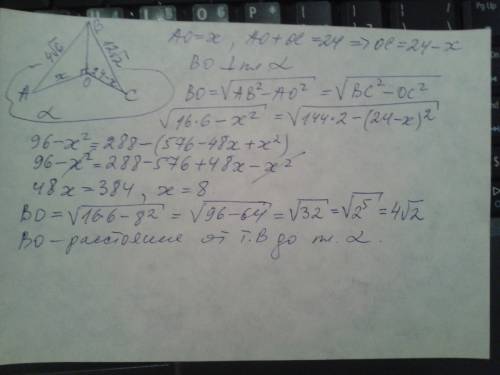 B
4√6
12√2
x
O
24-x
A
C
α
AO=x, AO+OC=24 ⇒ OC=24-x
BO ⊥ пл. α
BO=√(AB²-AO²) = √(BC²-OC²)
√(16·6-x²) = √(144·2-(24-x)²)
96-x²=288-(576-48x+x²)
96-x²=288-576+48x-x²
48x=384, x=8
BO=√(16·6-8²) = √(96-64) = √32 = √2⁵ = 4√2
BO-расстояние от т.B до пл. α.